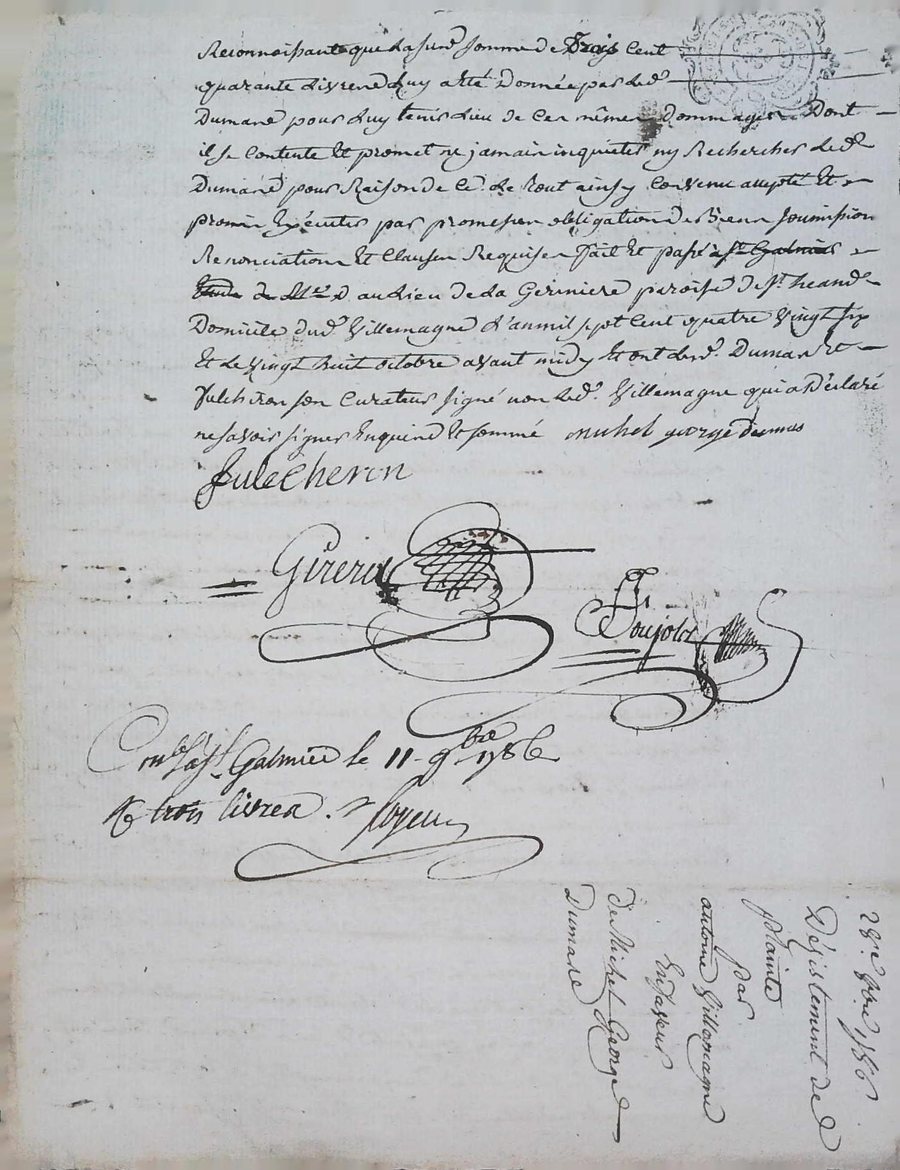 Reconnoissante que la susd. somme de Trois Cent
quarante Livres Luy a été Donnée par Led.
Dumard pour Luy tenir Lieu de Ces mêmes Dommages Dont
il se Contente Et promet ne jamais inquieter ny Rechercher Led.
Dumard pour Raison de Ce. Le tout ainsy Convenu accepté Et
promis Exécuter par promesses obligation de Biens soumission
Renonciation Et Clauses Requises fait Et passé a St Galmier
Etude de au Lieu de La Geriniere paroisse de St heand
Domicile dud. Villemagne L'an mil sept Cent quatre Vingt six
Et Le Vingt huit octobre avant midy Et ont Lesd. Dumard Et
fulchiron son Curateur signé non Led. Villemagne qui a Déclaré
ne savoir signer Enquis Et sommé michel george dumas
fulcheron
Girerd
Poujols
Conlé a St Galmier le 11 9bre 1786
R trois livres
28e 8bre 1786
Désistement de
plainte
par
antoine Villemagne
En faveur
de Michel George
Dumard